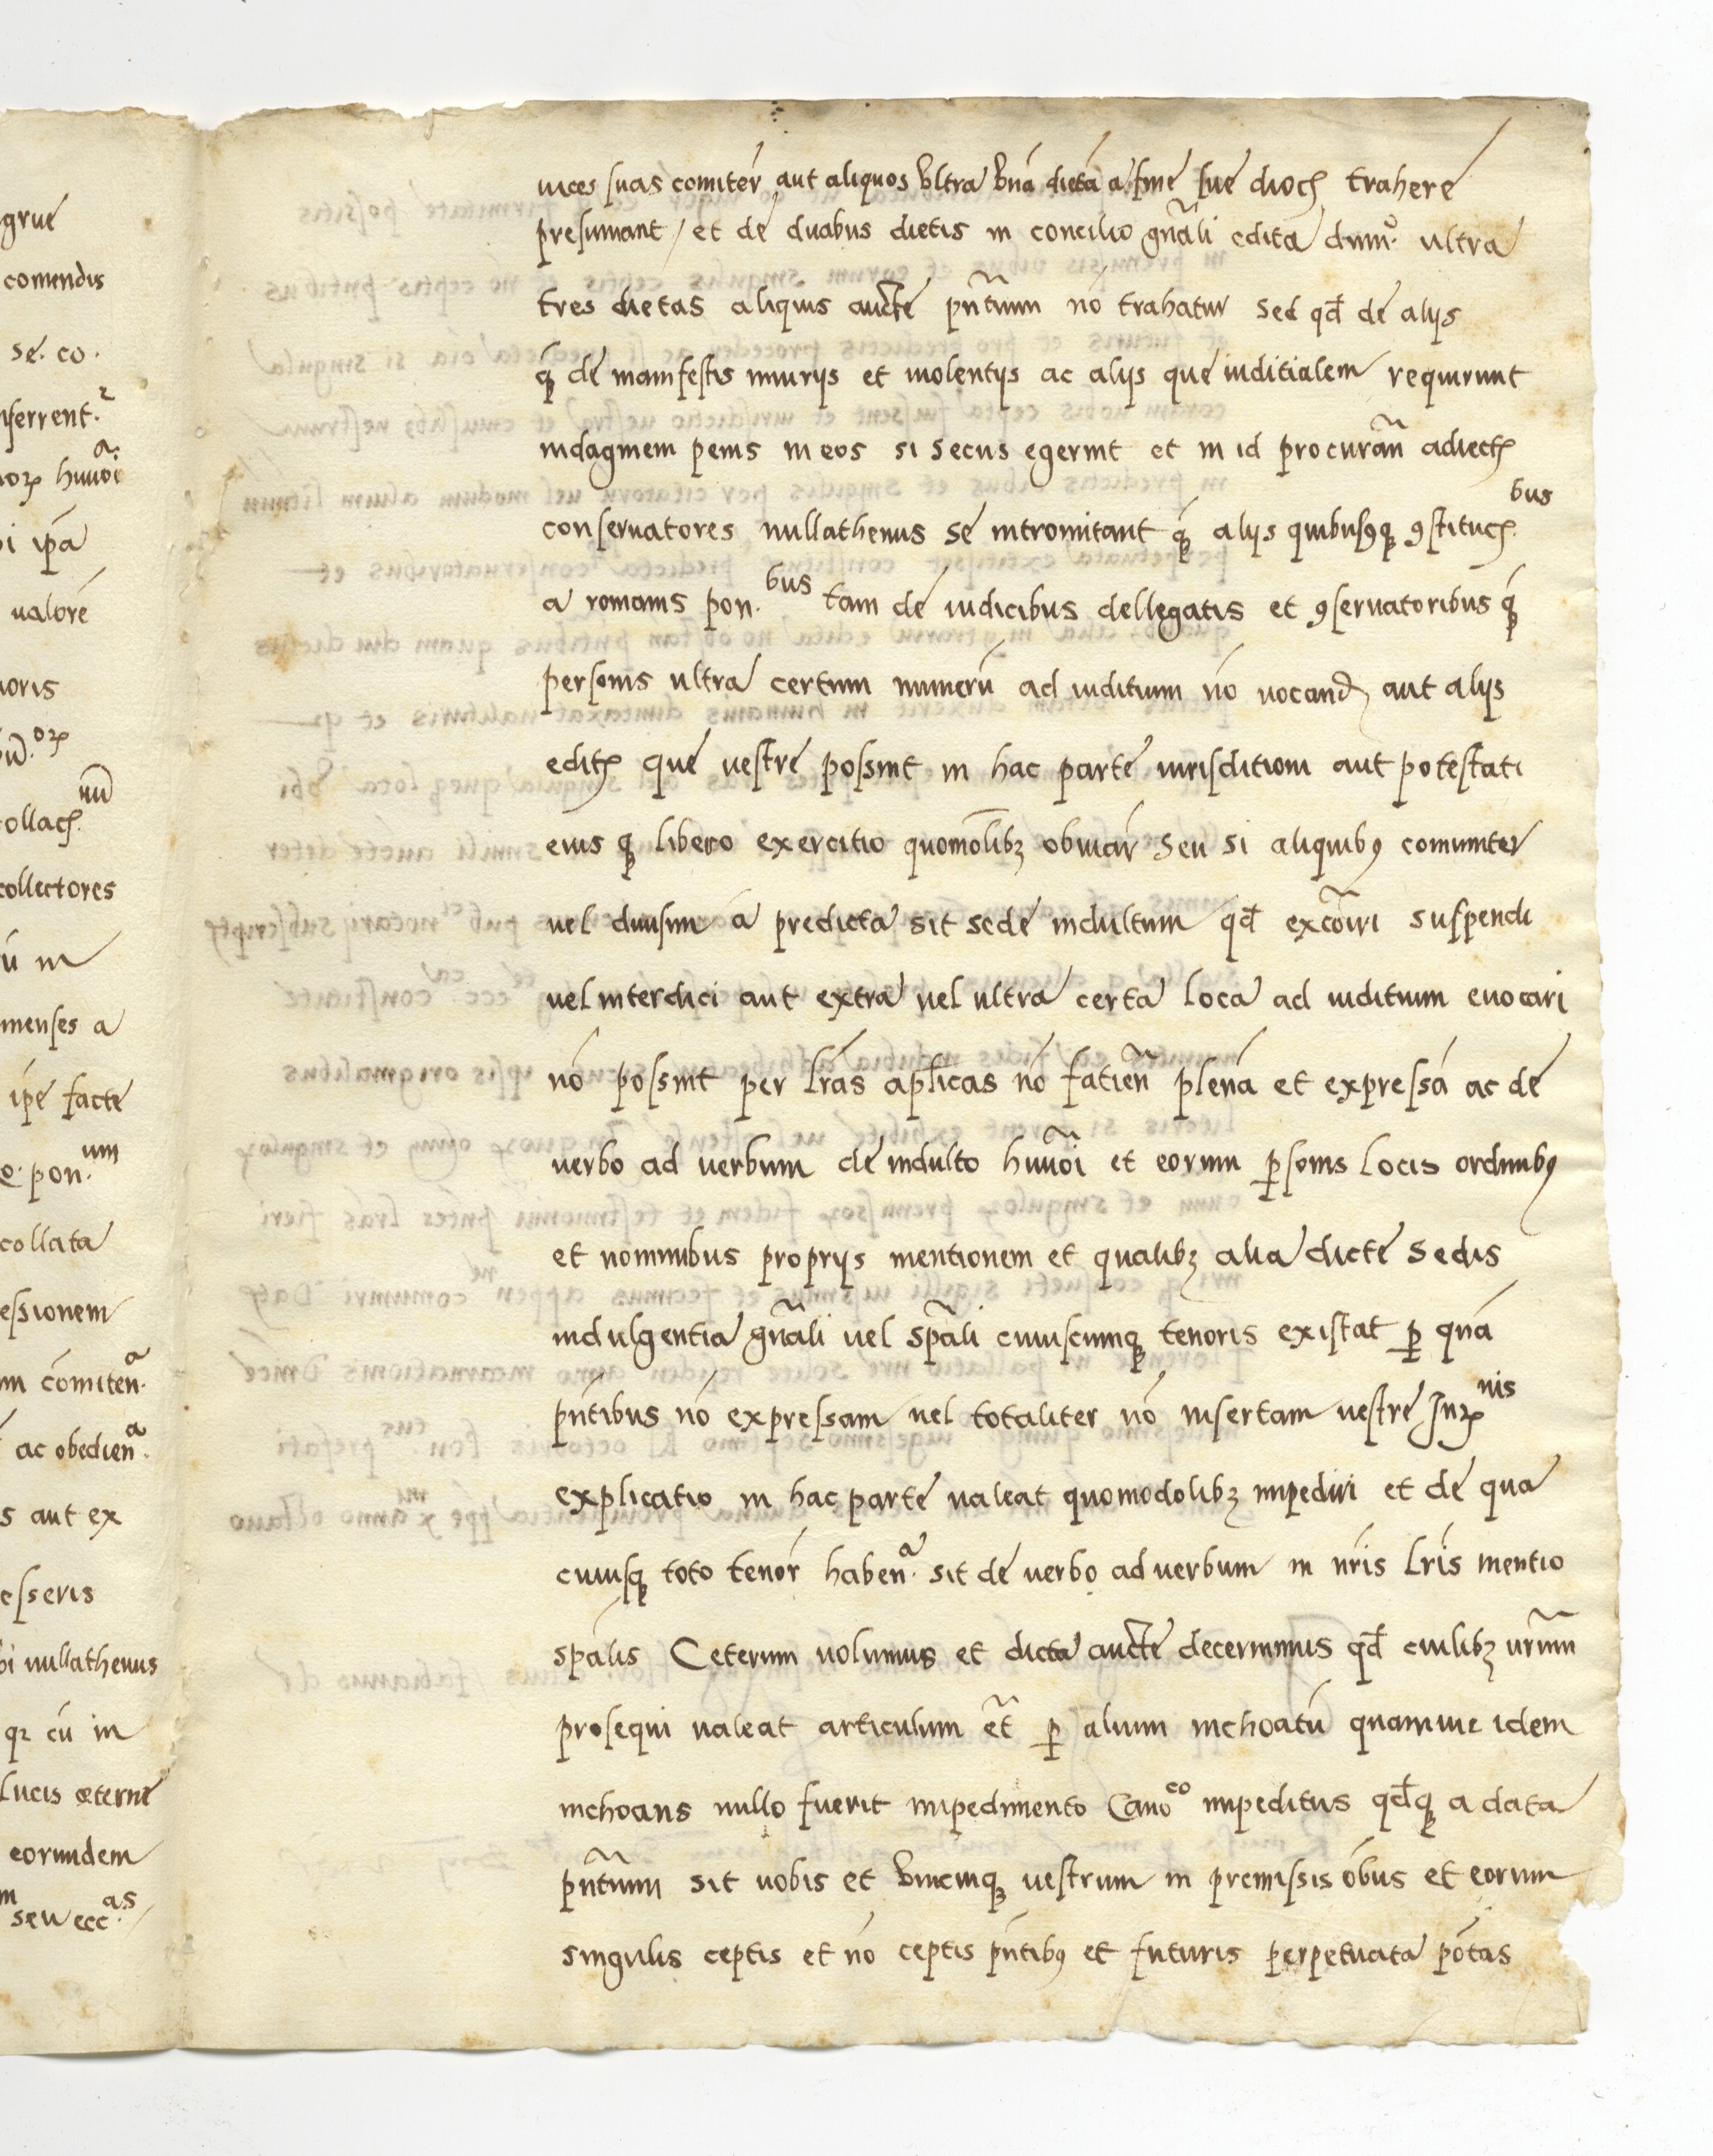 grue
comendis
se. co.
nferrent.r
orꝝ huiꝰi a
i ip̄a
valore
noris
orꝝ
collacꝭ. nū
collectores
ū in
menses a
ipē facte
e. pon. um
collata
essionem
m comiten. a
ac obedien. a
s aut ex
esseris
bi nullathenus
qꝛ cū in
lucis æterne
eorundem
seu ecc. as
uices suas comiter aut aliquos Vltra Vnā dietā a fine sue diocꝭ trahere
presumant / et de duabus dietis in concilio gñali edita dum.o ultra
tres dietas aliquis aucte pñtium nō trahatur sed qđ de alijs
qꝫ de manifestis iniurijs et uiolentijs ac alijs que iuditialem requirunt
indaginem penis in eos si secus egerint et in id procurañ adiectꝭ
conseruatores nullathenus se intromitant qꝫ alijs quibusꝯqꝫ ꝯstitucꝭ. bus
a romanis pon. bus tam de iudicibus dellegatis et ꝯseruatoribus qꝫ
personis ultra certum numerū ad iuditium nō uocanđ aut alijs
editꝭ que uestre possint in hac parte iurisditioni aut potestati
eius qꝫ libero exercitio quomōlibꝫ obuiār seu si aliquibꝯ comuniter
uel diuisim a predicta sit sede indultum qđ excōiri suspendi
uel interdici aut extra uel ultra certa loca ad iuditium euocari
nō possint per lrās aplicas nō fatieñ plenā et expressā ac de
uerbo ad uerbum de indulto huiōi et eorum ꝑsonis locis ordinibꝯ
et nominibus proprijs mentionem et qualibꝫ alia dicte sedis
indulgentia gñali uel spāli cuiuscumqꝫ tenoris existat ꝑ quā
pñtibus nō expressam uel totaliter nō insertam uestre Jurꝭ nis
explicatio in hac parte ualeat quomodolibꝫ impediri et de qua
cuiusqꝫ toto tenōr haben. a sit de uerbo ad uerbum in nr̄is lrīs mentio
spālis Ceterum uolumus et dicta aucte decernimus qđ cuilibꝫ ur̄m
prosequi ualeat articulum et̄ ꝑ alium inchoatū quamuis idem
inchoans nullo fuerit impedimento Cano co impeditus qđqꝫ a data
pñtium sit uobis et Vnicuiqꝫ uestrum in premissis ōbus et eorum
singulis ceptis et nō ceptis pñtibꝯ et futuris perpetuata potās